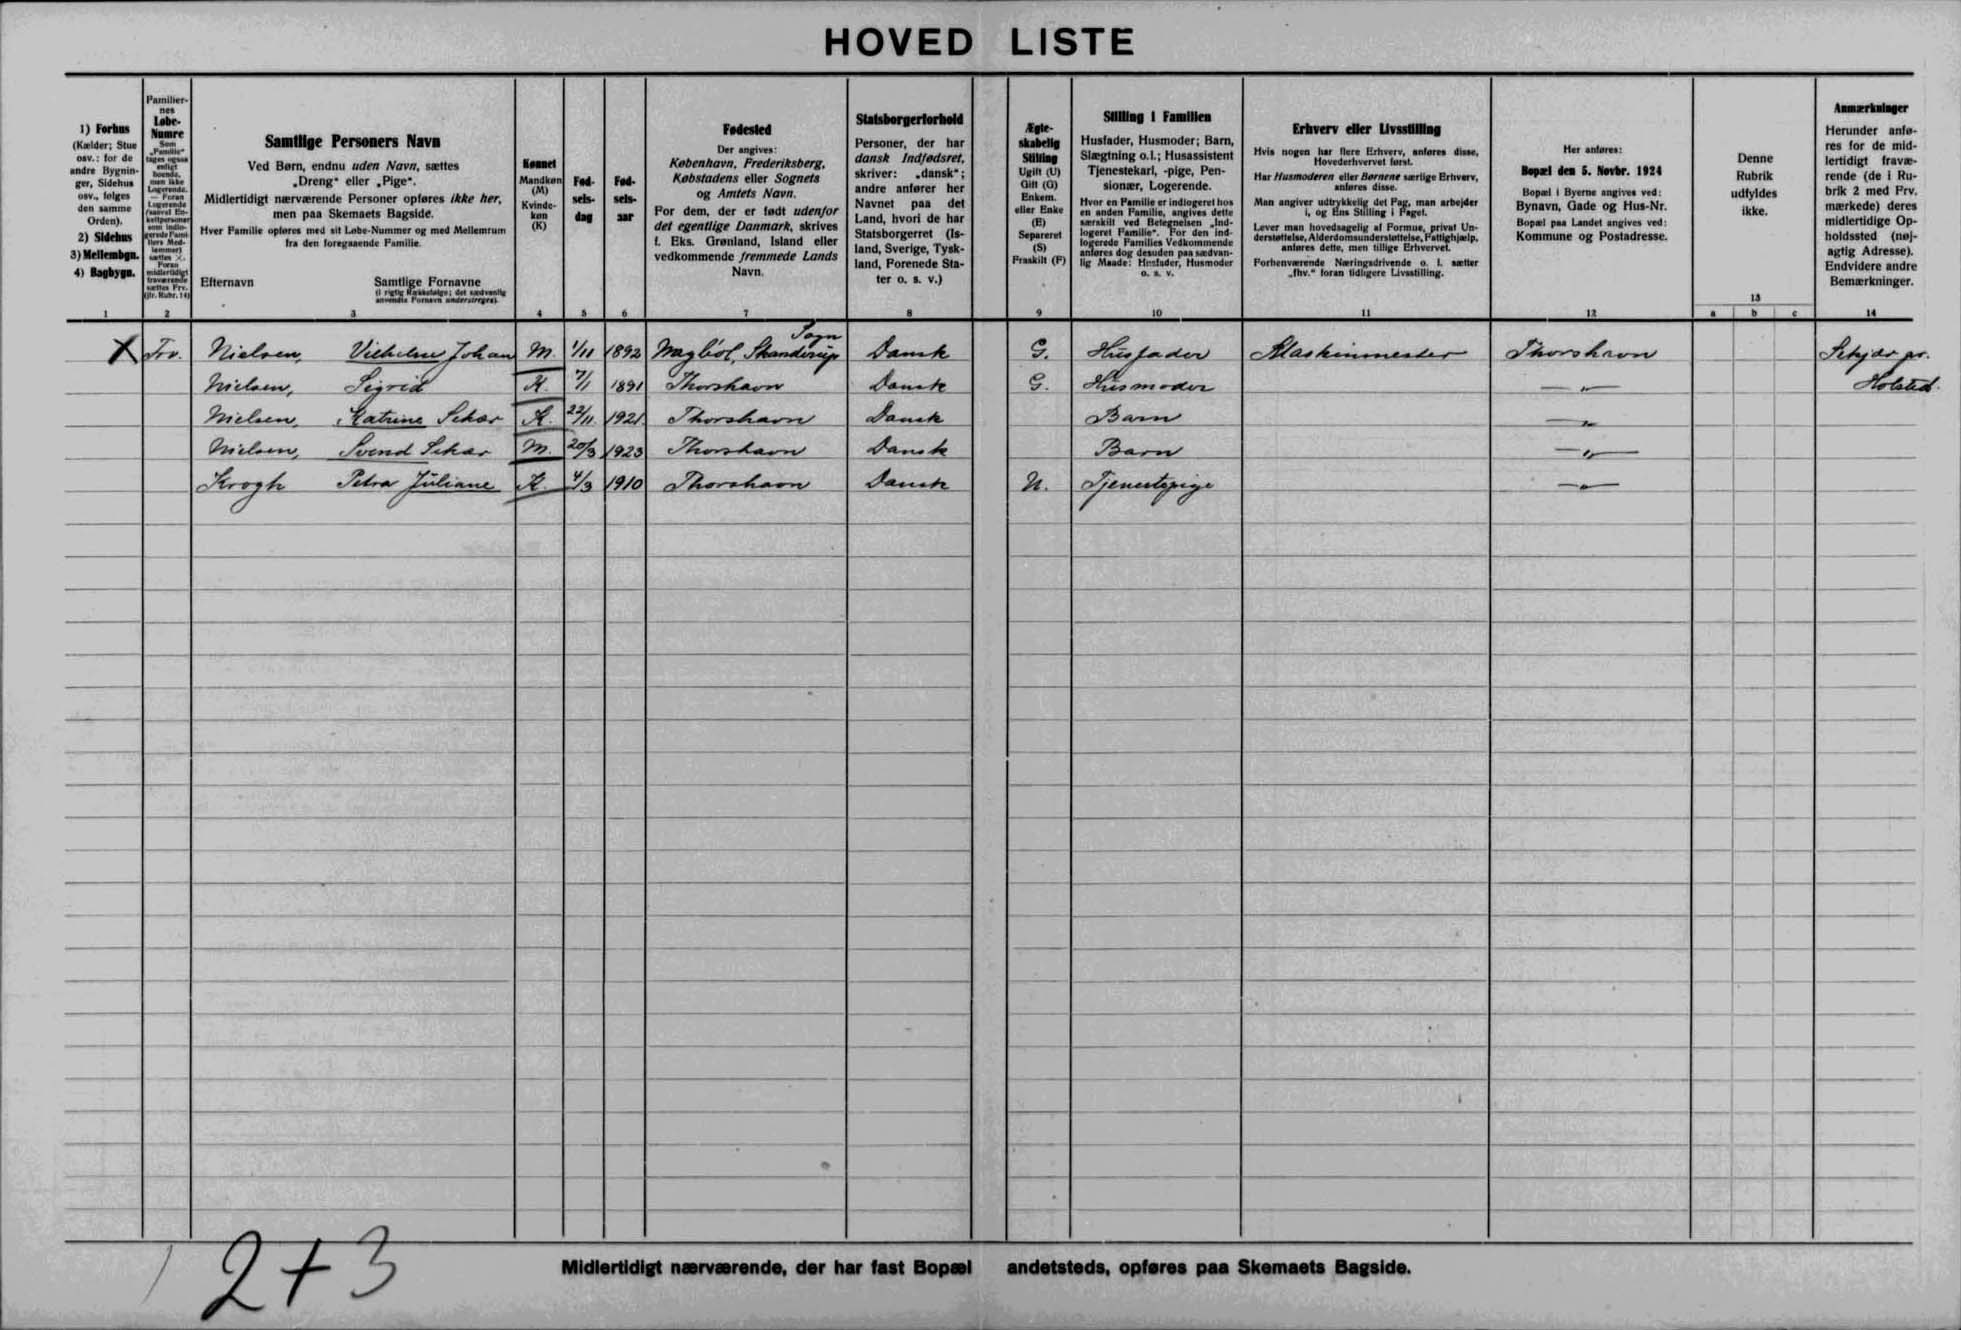 HOVED LISTE
1) Forhus
(Kælder; Stue
osv.: for de
andre Bygnin-
ger, Sidehus
osv., følges
den samme
Orden).
2) Sidehus
3) Mellembgn.
4) Bagbygn.
Familier-
nes
Løbe-
Numre
Som
„Familie“
tages ogsaa
enligt
boende,
men ikke
Logerende.
— Foran
Logerende
(saavel En-
keltpersoner
som indlo-
gerede Fami-
liers Med-
lemmer)
sættes X.
Foran
midlertidigt
fraværende
sættes Frv.
(jfr. Rubr. 14)
Samtlige Personers Navn
Ved Børn, endnu uden Navn, sættes
„Dreng“ eller „Pige“.
Midlertidigt nærværende Personer opføres ikke her,
men paa Skemaets Bagside.
Hver Familie opføres med sit Løbe-Nummer og med Mellemrum
fra den foregaaende Familie.
Efternavn Samtlige Fornavne
(i rigtig Rækkefølge; det sædvanlig
anvendte Fornavn understreges).
Kønnet
Mandkøn
(M)
Kvinde-
køn
(K)
Fød-
sels-
dag
Fød-
sels-
aar
Fødested
Der angives:
København, Frederiksberg,
Købstadens eller Sognets
og Amtets Navn.
For dem, der er født udenfor
det egentlige Danmark, skrives
f. Eks. Grønland, Island eller
vedkommende fremmede Lands
Navn.
Statsborgerforhold
Personer, der har
dansk Indfødsret,
skriver: „dansk“;
andre anfører her
Navnet paa det
Land, hvori de har
Statsborgerret (Is-
land, Sverige, Tysk-
land, Forenede Sta-
ter o. s. v.)
Ægte-
skabelig
Stilling
Ugift (U)
Gift (G)
Enkem.
eller Enke
(E)
Separeret
(S)
Fraskilt (F)
Stilling i Familien
Husfader, Husmoder; Barn,
Slægtning o.l.; Husassistent
Tjenestekarl, -pige, Pen-
sionær, Logerende.
Hvor en Familie er indlogeret hos
en anden Familie, angives dette
særskilt ved Betegnelsen „Ind-
logeret Familie“. For den ind-
logerede Families Vedkommende
anføres dog desuden paa sædvan-
lig Maade: Husfader, Husmoder
o. s. v.
Erhverv eller Livsstilling
Hvis nogen har flere Erhverv, anføres disse,
Hovederhvervet først.
Har Husmoderen eller Børnene særlige Erhverv,
anføres disse.
Man angiver udtrykkelig det Fag, man arbejder
i, og Ens Stilling i Faget.
Lever man hovedsagelig af Formue, privat Un-
derstøttelse, Alderdomsunderstøttelse, Fattighjælp,
anføres dette, men tillige Erhvervet.
Forhenværende Næringsdrivende o. l. sætter
„fhv.“ foran tidligere Livsstilling.
Her anføres:
Bopæl den 5. Novbr. 1924
Bopæl i Byerne angives ved:
Bynavn, Gade og Hus-Nr.
Bopæl paa Landet angives ved:
Kommune og Postadresse.
Denne
Rubrik
udfyldes
ikke.
Anmærkninger
Herunder anfø-
res for de mid-
lertidigt fravæ-
rende (de i Ru-
brik 2 med Frv.
mærkede) deres
midlertidige Op-
holdssted (nøj-
agtig Adresse).
Endvidere andre
Bemærkninger.
1 2 3 4 5 6 7 8 9 10 11 12 13 14
a b c
X Frv. Nielsen, Vilhelm Johan M. 1/11 1892 Magbøl, Skanderup Sogn Dansk G. Husfader Maskinmester Thorshavn Sekjær pr.
Nielsen, Sigrid K. 7/1 1891 Thorshavn Dansk G. Husmoder — „ — Holsted.
Nielsen, Katrine Sekær K. 22/11 1921 Thorshavn Dansk Barn — „ —
Nielsen, Svend Sekær M. 20/3 1923 Thorshavn Dansk Barn — „ —
Krogh Petra Juliane K. 4/3 1910 Thorshavn Dansk U. Tjenestepige — „ —
Midlertidigt nærværende, der har fast Bopæl andetsteds, opføres paa Skemaets Bagside.
2+3